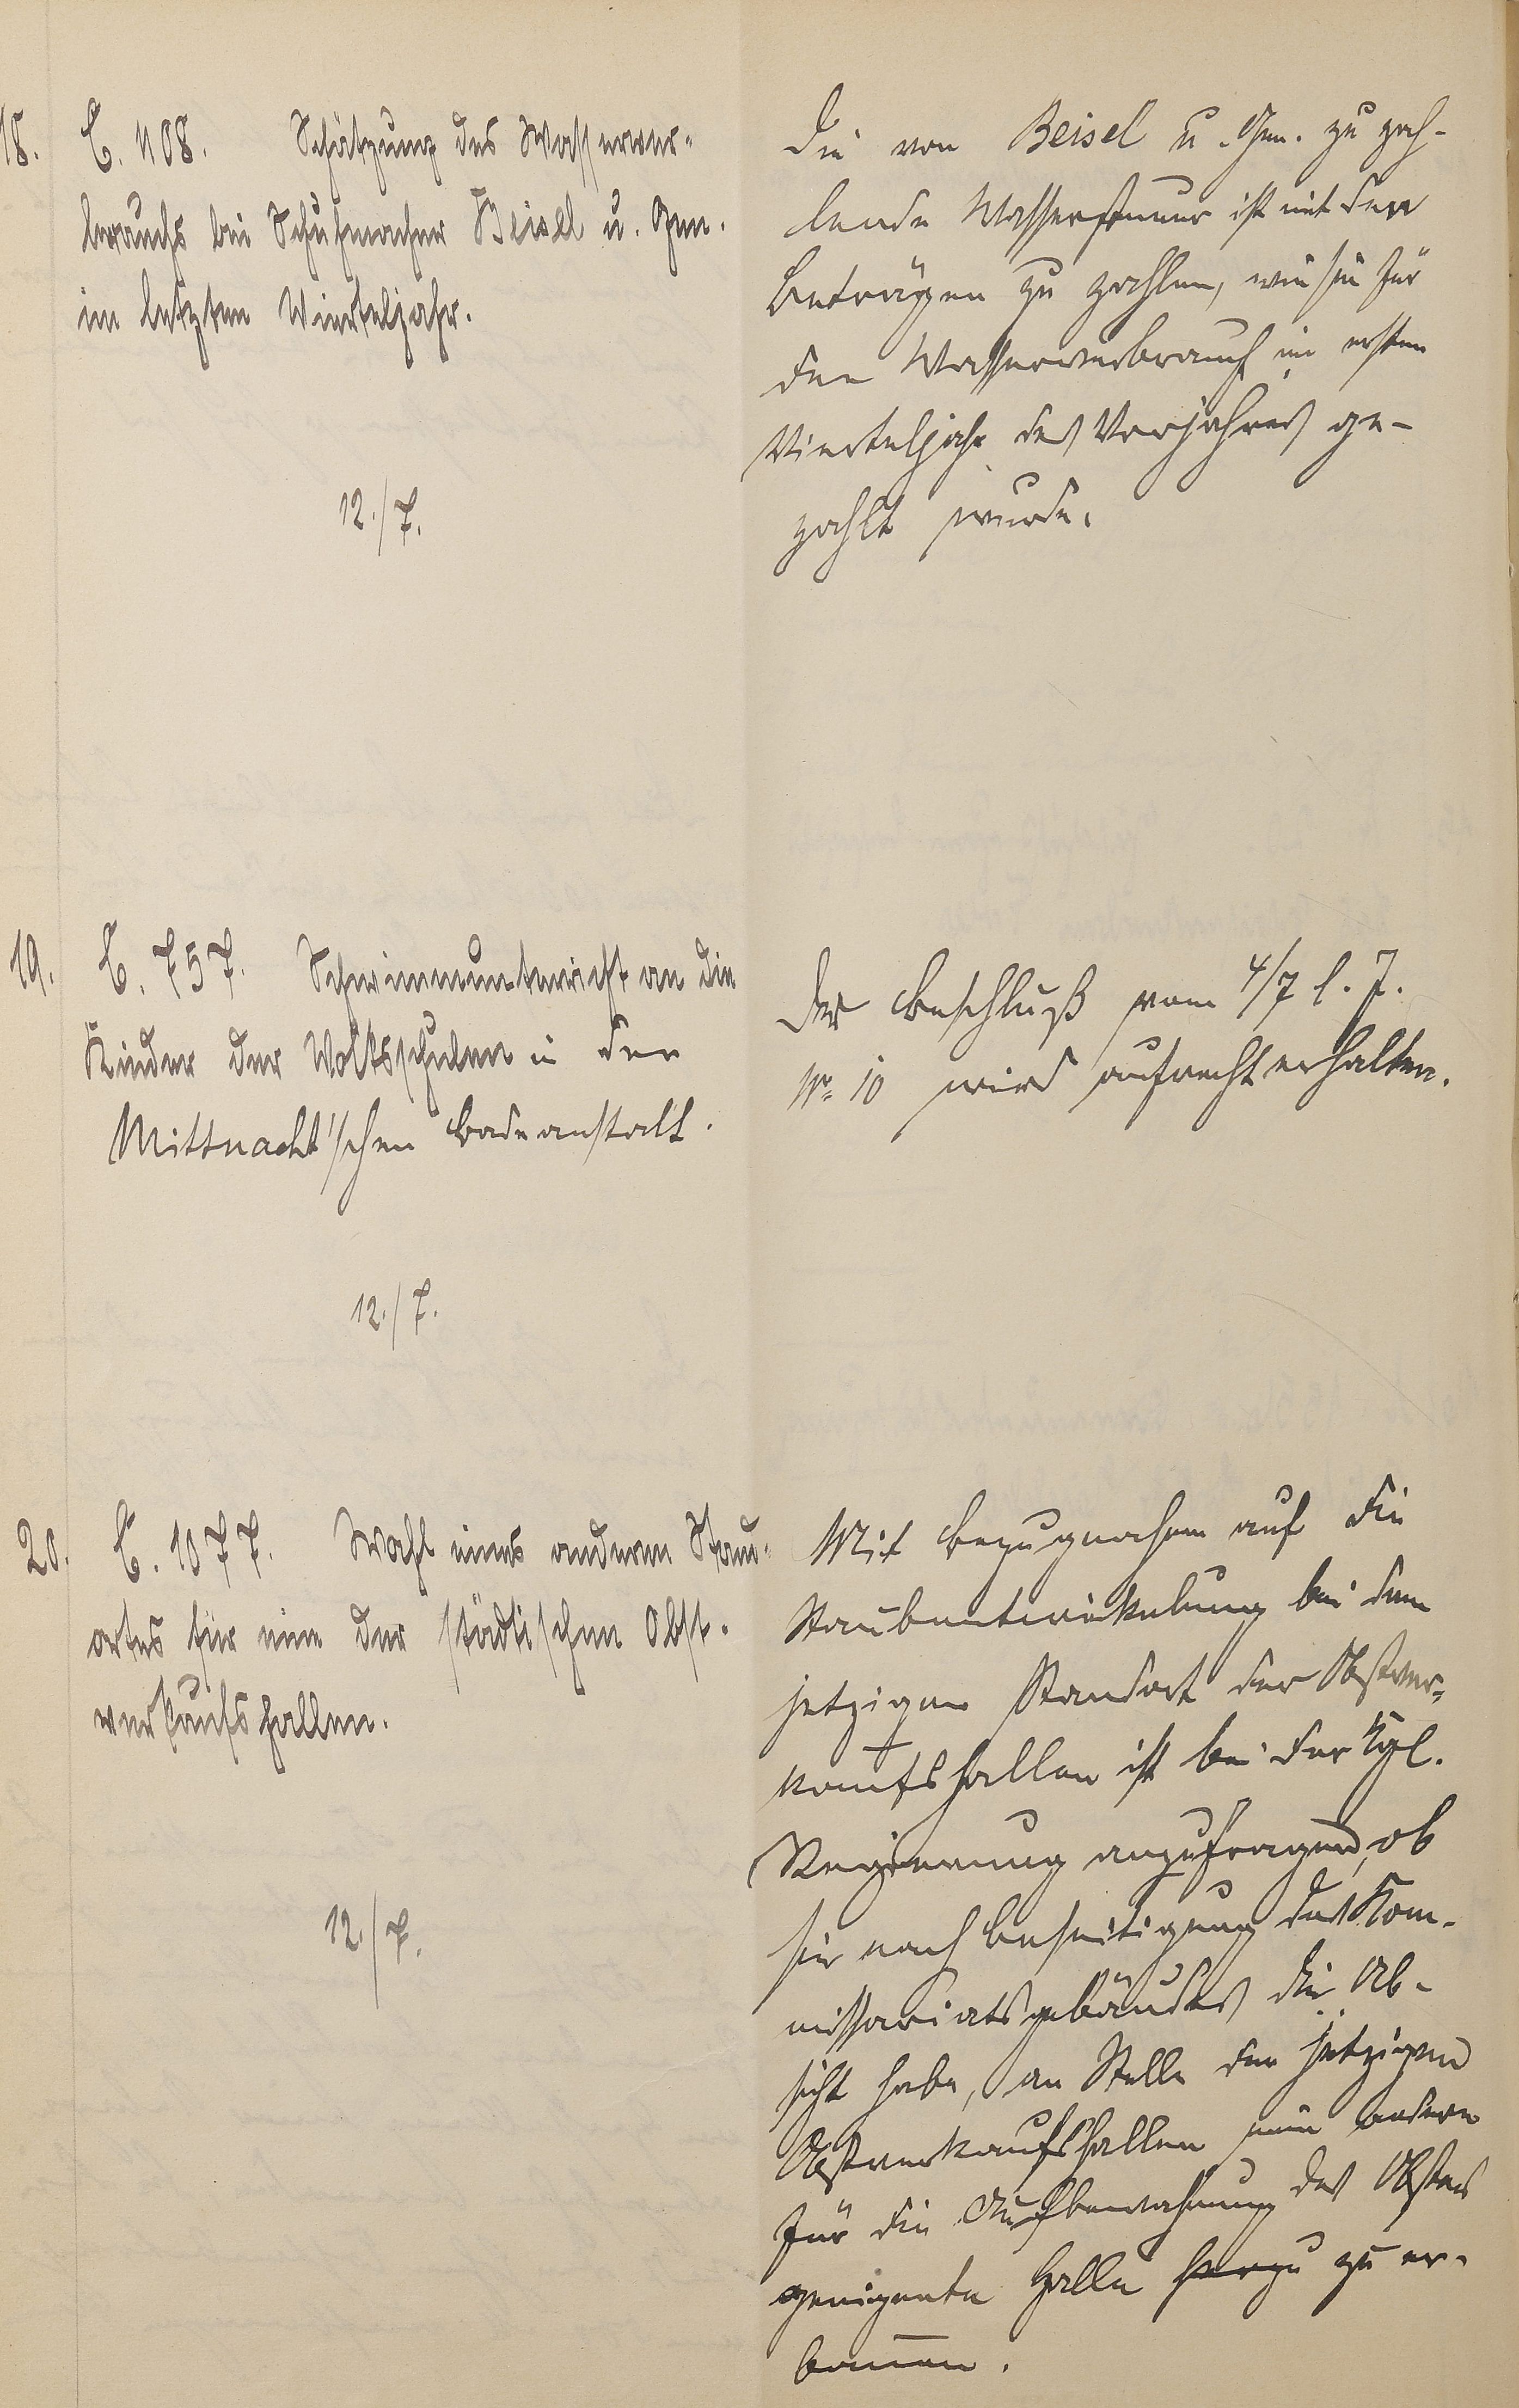 18. C. 1108. Schätzung des Wasserver-
brauchs bei Schuhmacher Beisel u. Gen.
im letzten Vierteljahr.
12./7.
Die von Beisel u. Gen. zu zah-
lende Wassersteuer ist mit den
Beträgen zu zahlen, wie sie für
den Wasserverbrauch im ersten
Vierteljahr des Vorjahres ge-
zahlt wurde.
19. C. 757. Schwimmunterricht an die
Kinder der Volksschulen in der
Mittnacht'schen Badeanstalt.
12./7.
Der Beschluß vom 4/7 l. J.
No. 10 wird aufrecht erhalten.
20. C. 1077. Wahl eines anderen Stand-
ortes für eine der städtischen Obst-
verkaufshallen.
12./7.
Mit Bezugnahme auf die
Staubentwickelung bei dem
jetzigen Standort der Obstver-
kaufshallen ist bei der Kgl.
Regierung anzufragen, ob
sie nach Beseitigung des Kom-
missariatsgebäudes die Ab-
sicht habe, an Stelle der jetzigen
Obstverkaufshallen eine andere
für die Aufbewahrung des Obstes
geeignete Halle herzu zu er-
bauen.